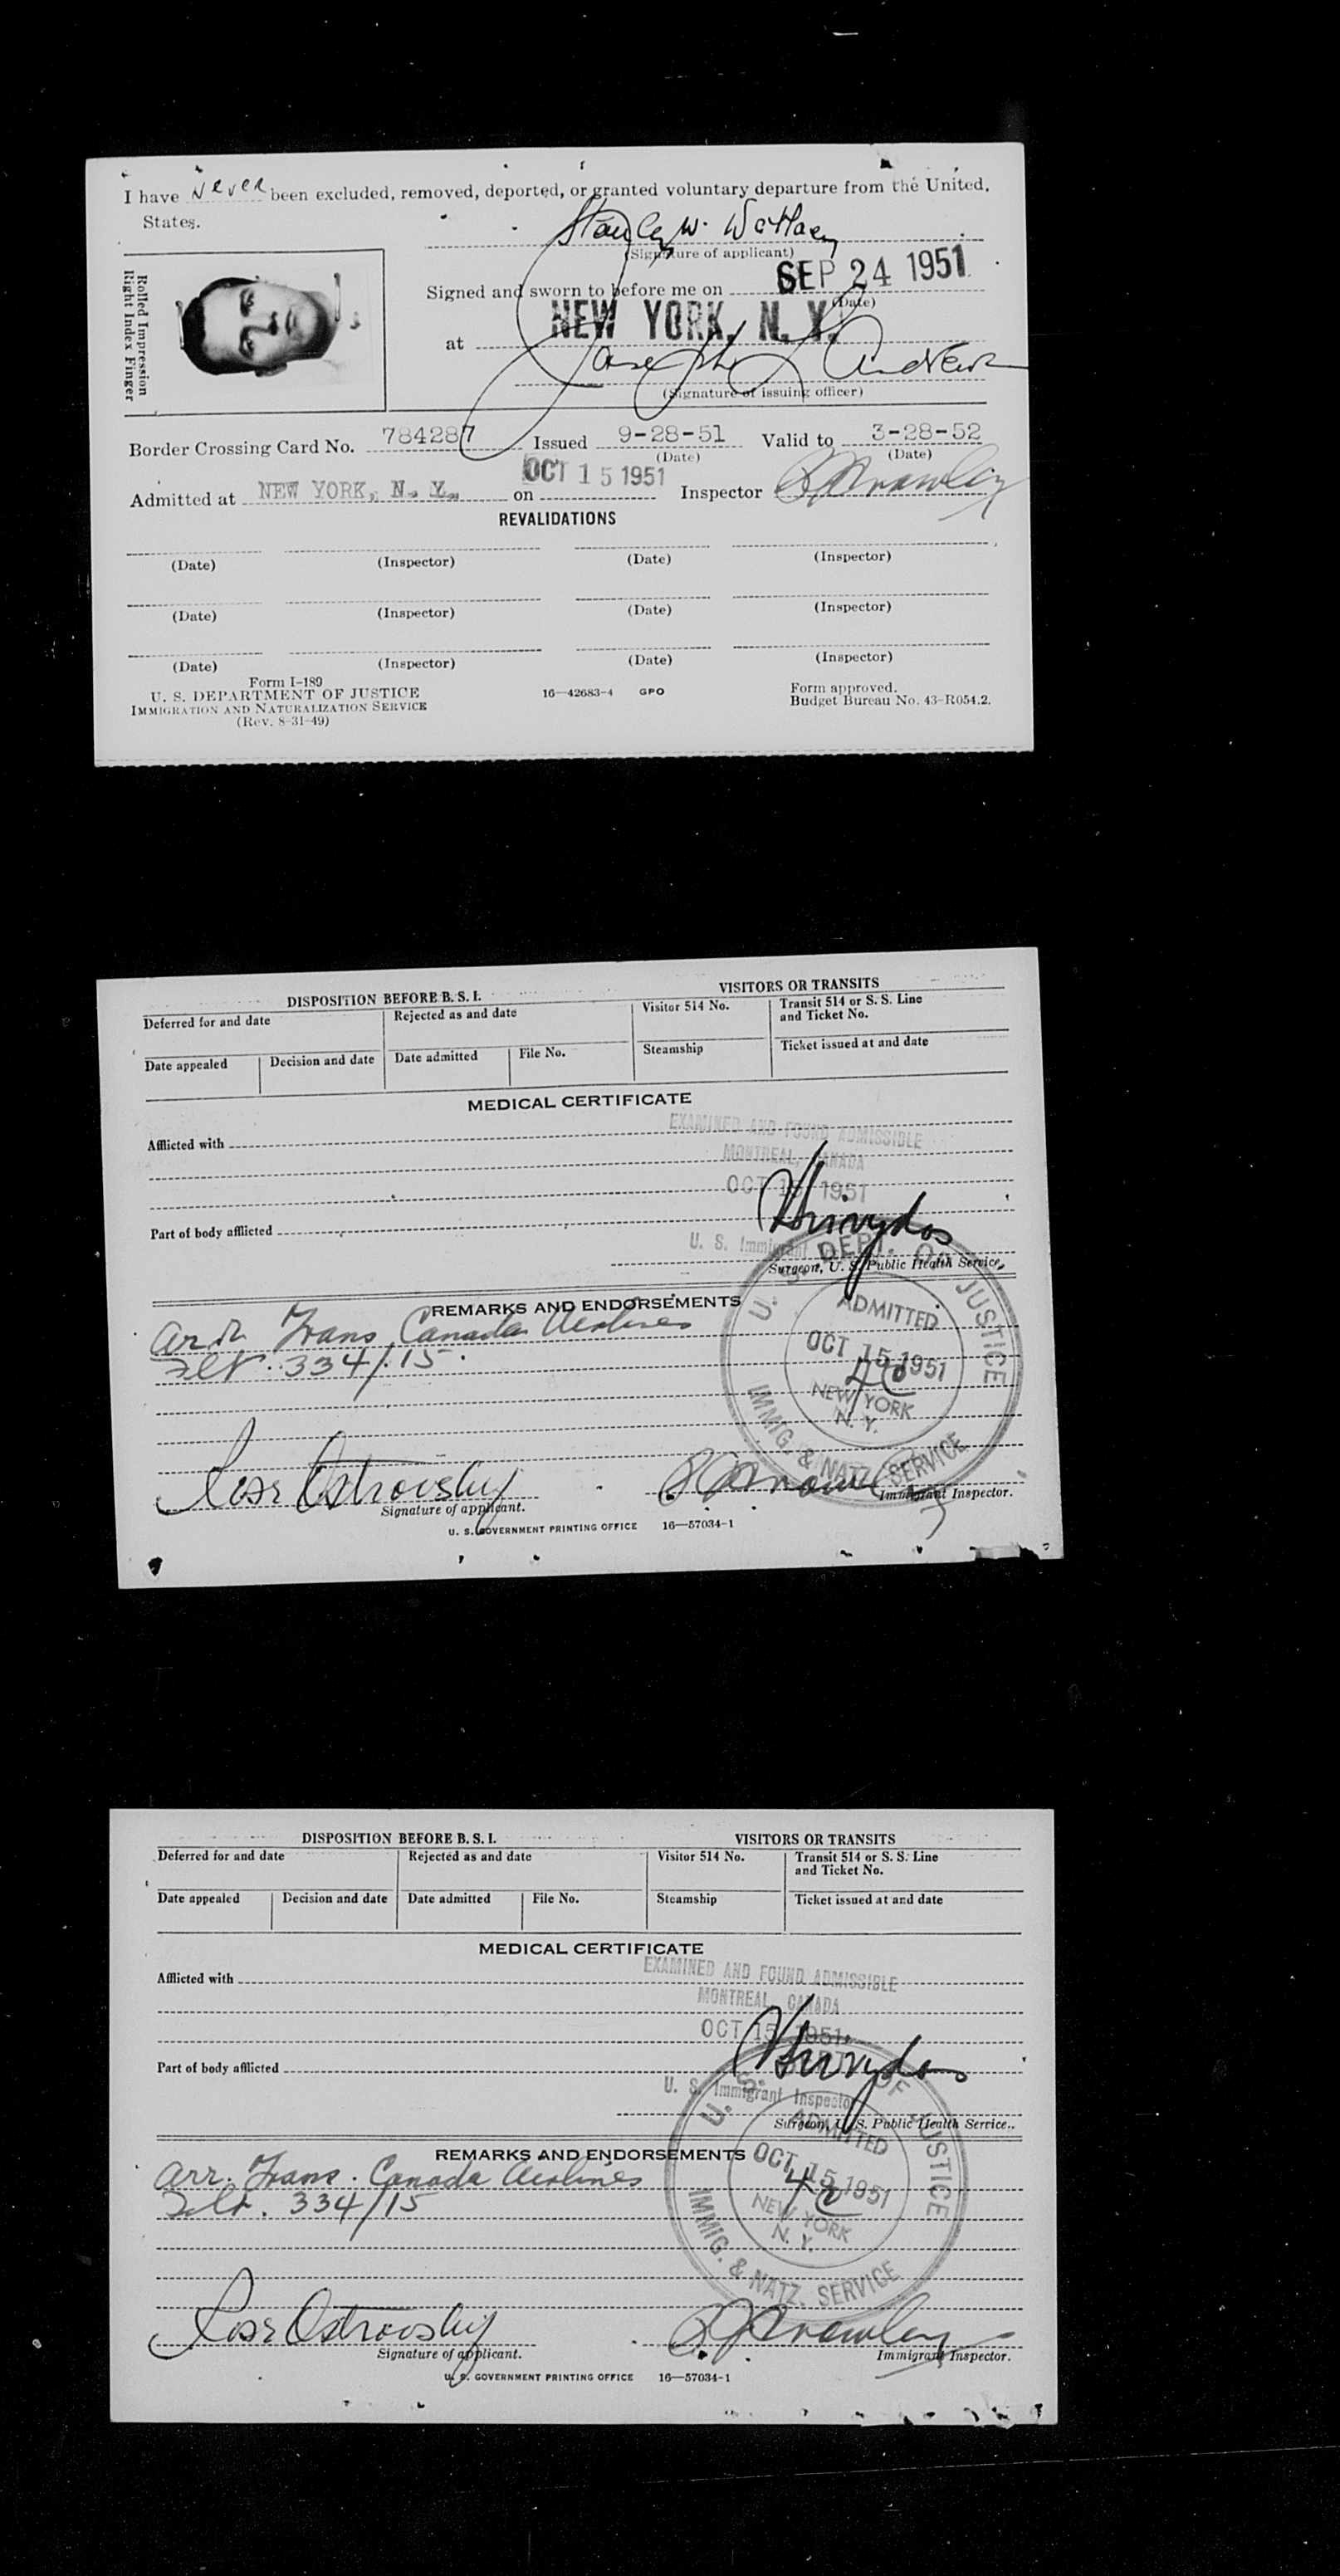 I have Never been excluded, removed, deported, or granted voluntary departure from the United
States.
Stanley W.
(Signature of applicant)
Rolled Impression
Right Index Finger
Signed and sworn to before me on SEP 24 1951
(Date)
at NEW YORK, N. Y.
Joseph L
(Signature of issuing officer)
Border Crossing Card No. 784287 Issued 9-28-51 Valid to 3-28-52
(Date) (Date)
Admitted at NEW YORK, N. Y. on OCT 15 1951 Inspector
REVALIDATIONS
(Date) (Inspector) (Date) (Inspector)
(Date) (Inspector) (Date) (Inspector)
(Date) (Inspector) (Date) (Inspector)
Form I-189
U. S. DEPARTMENT OF JUSTICE
IMMIGRATION AND NATURALIZATION SERVICE
(Rev. 8-31-49)
16—42683-4 GPO
Form approved.
Budget Bureau No. 43-R054.2.
DISPOSITION BEFORE B. S. I. VISITORS OR TRANSITS
Deferred for and date Rejected as and date Visitor 514 No. Transit 514 or S. S. Line
and Ticket No.
Date appealed Decision and date Date admitted File No. Steamship Ticket issued at and date
MEDICAL CERTIFICATE
EXAMINED AND FOUND ADMISSIBLE
Afflicted with
MONTREAL, CANADA
OCT 15 1951
Part of body afflicted
U. S. Immigrant
Surgeon, U. S. Public Health Service.
U. S. DEPT. OF JUSTICE
REMARKS AND ENDORSEMENTS
ADMITTED
Arr. Trans Canada Airlines
OCT 15 1951
Flt. 334/15
NEW YORK
N. Y.
IMMIG. & NATZ. SERVICE
Rose Ostrovsky
Signature of applicant. Immigrant Inspector.
U. S. GOVERNMENT PRINTING OFFICE 16—57034-1
DISPOSITION BEFORE B. S. I. VISITORS OR TRANSITS
Deferred for and date Rejected as and date Visitor 514 No. Transit 514 or S. S. Line
and Ticket No.
Date appealed Decision and date Date admitted File No. Steamship Ticket issued at and date
MEDICAL CERTIFICATE
EXAMINED AND FOUND ADMISSIBLE
Afflicted with
MONTREAL, CANADA
OCT 15 1951
Part of body afflicted
U. S. Immigrant Inspector
Surgeon, U. S. Public Health Service.
U. S. OF JUSTICE
REMARKS AND ENDORSEMENTS
ADMITTED
Arr. Trans. Canada Airlines
OCT 15 1951
Flt. 334/15
NEW YORK
N. Y.
IMMIG. & NATZ. SERVICE
Rose Ostrovsky
Signature of applicant. Immigrant Inspector.
U. S. GOVERNMENT PRINTING OFFICE 16—57034-1